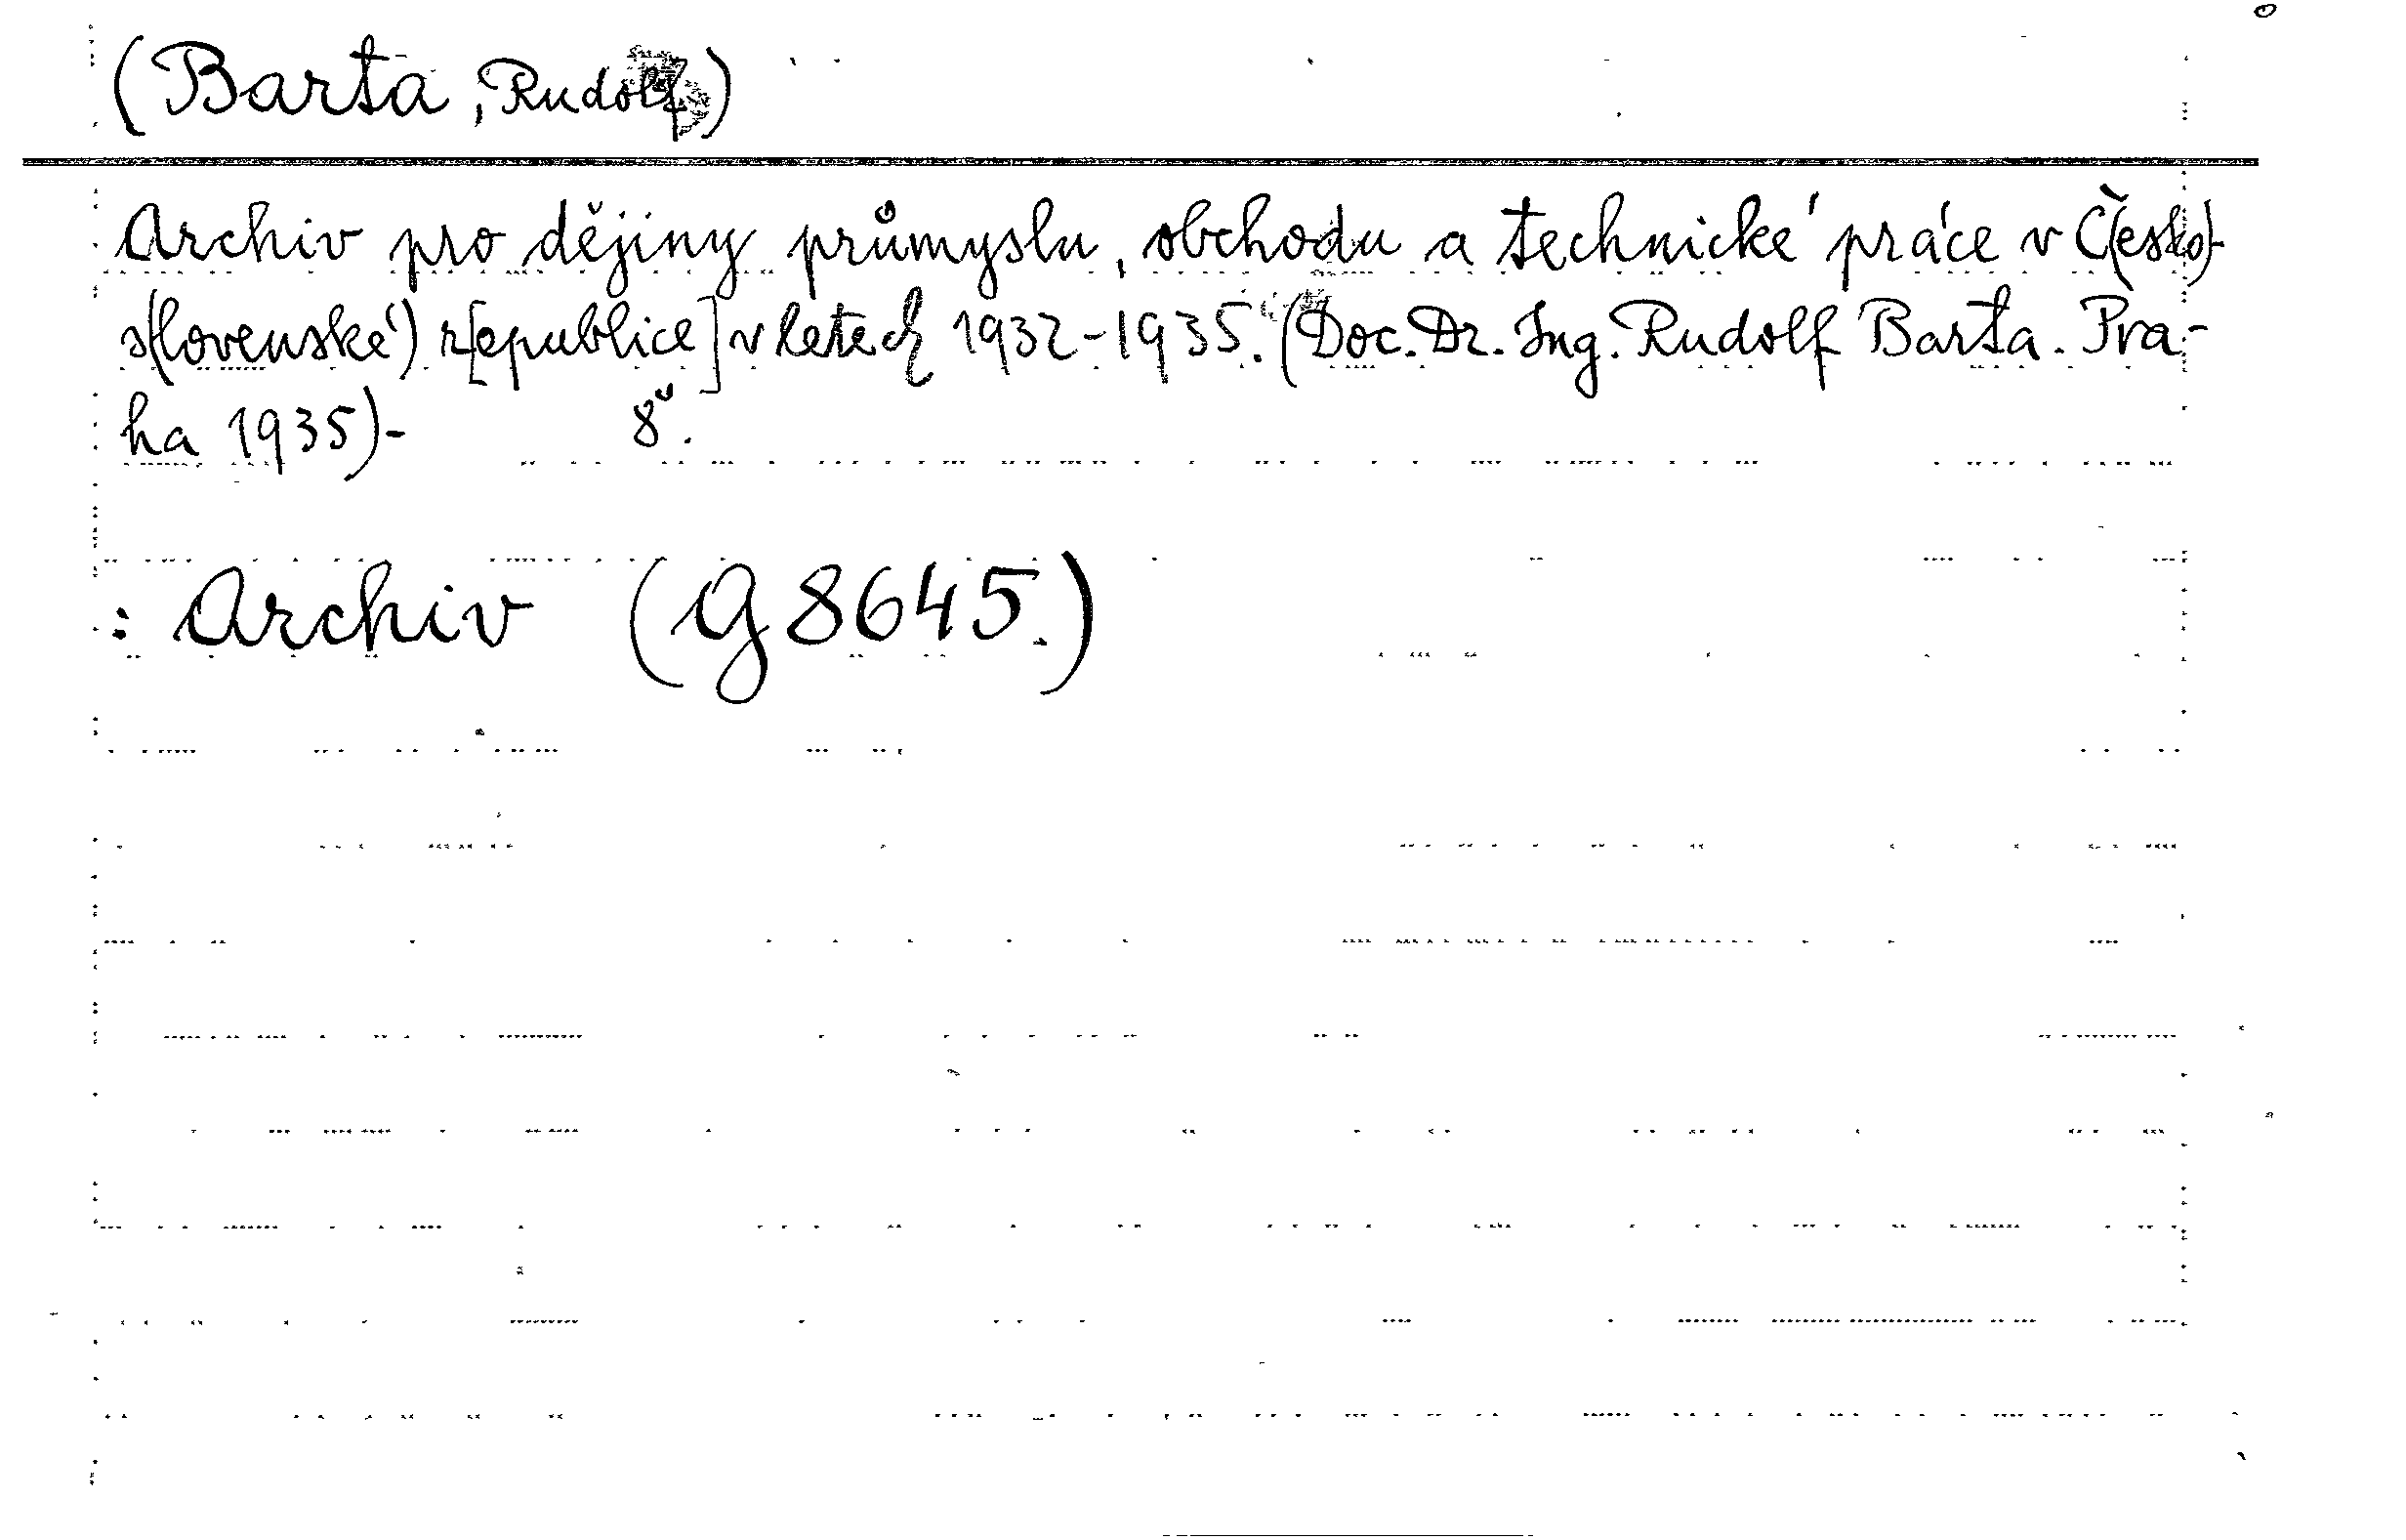 (Barta, Rudolf)
Archiv pro dějiny průmyslu, obchodu a technické práce v Č(esko)-
s(lovenské) r[epublice] v letech 1932-1935. (Doc. Dr. Ing. Rudolf Barta. Pra-
ha 1935)- 8°.
: Archiv (G 8645.)